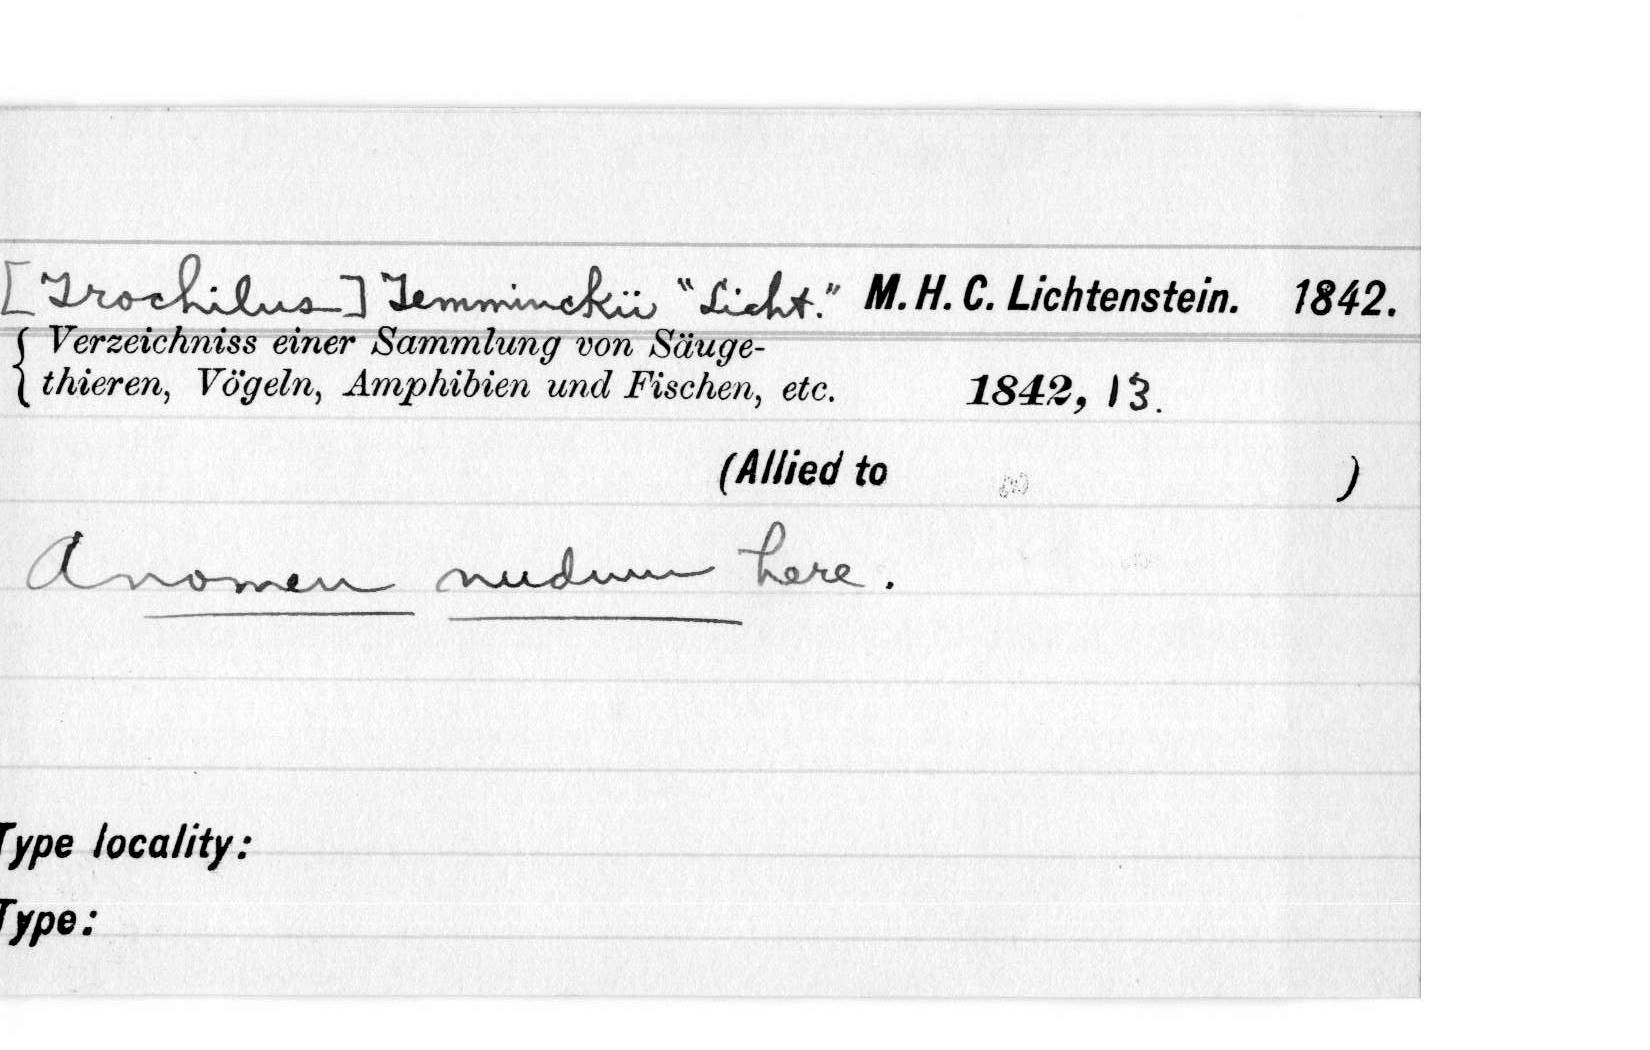 [Trochilus] Temminckii "Licht." M. H. C. Lichtenstein. 1842.
{ Verzeichniss einer Sammlung von Säuge-
thieren, Vögeln, Amphibien und Fischen, etc. 1842, 13.
(Allied to )
A nomen nudum here.
Type locality:
Type: